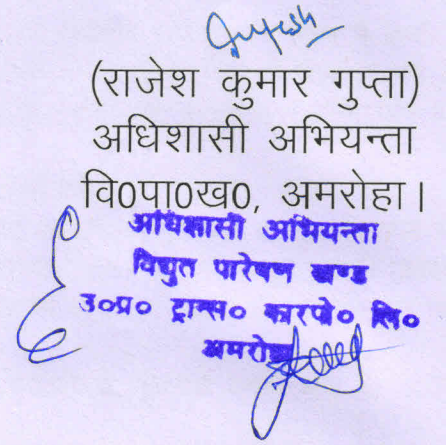 (राजेश कुमार गुप्ता)
अधिशासी अभियन्ता
वि0पा0ख0, अमरोहा।
अधिशासी अभियन्ता
विद्युत पारेषण खण्ड
उ०प्र० ट्रान्स० कारपो० लि०
अमरोहा